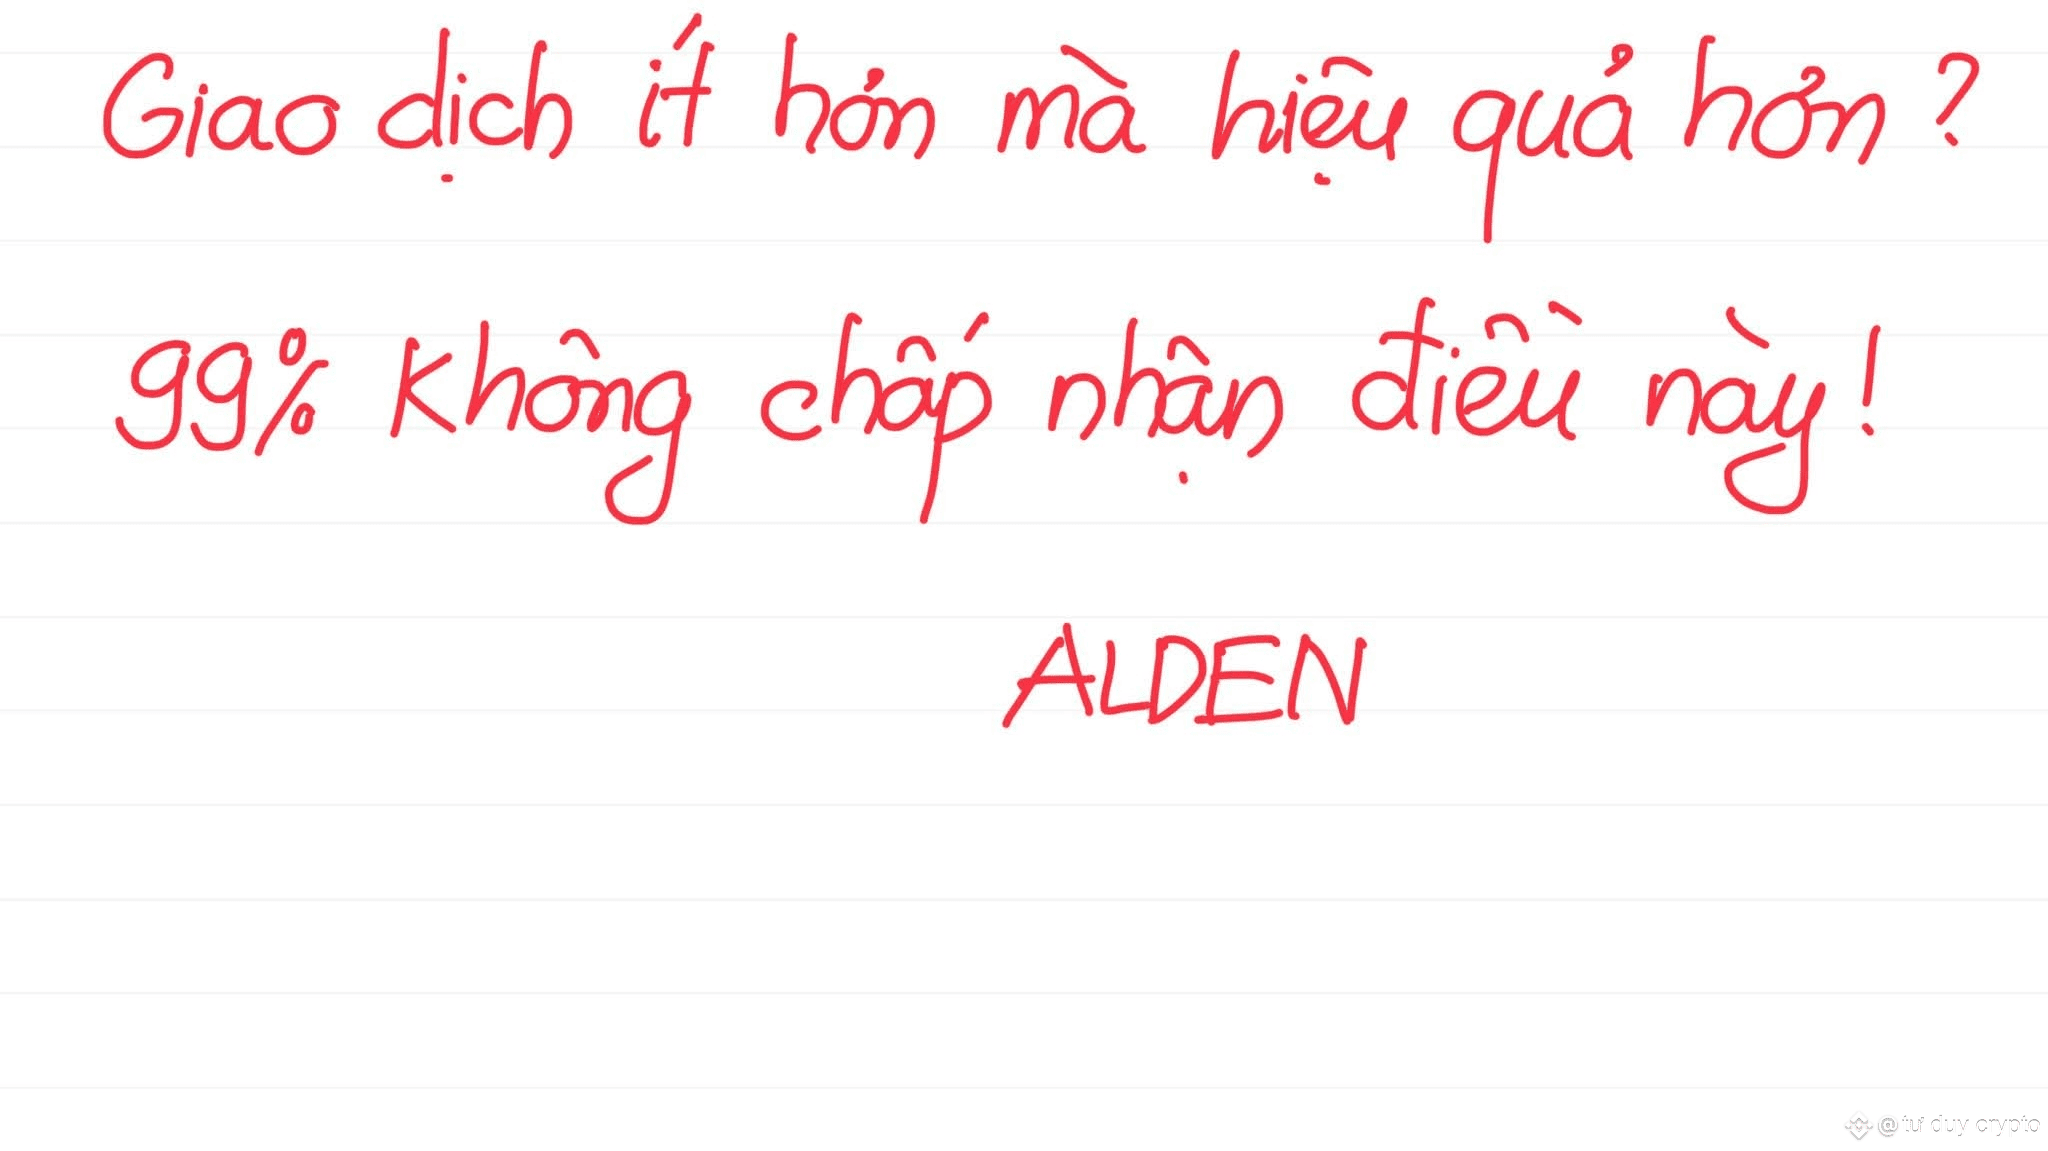 Giao dịch ít hơn mà hiệu quả hơn?
99% không chấp nhận điều này!
ALDEN
@tư duy crypto